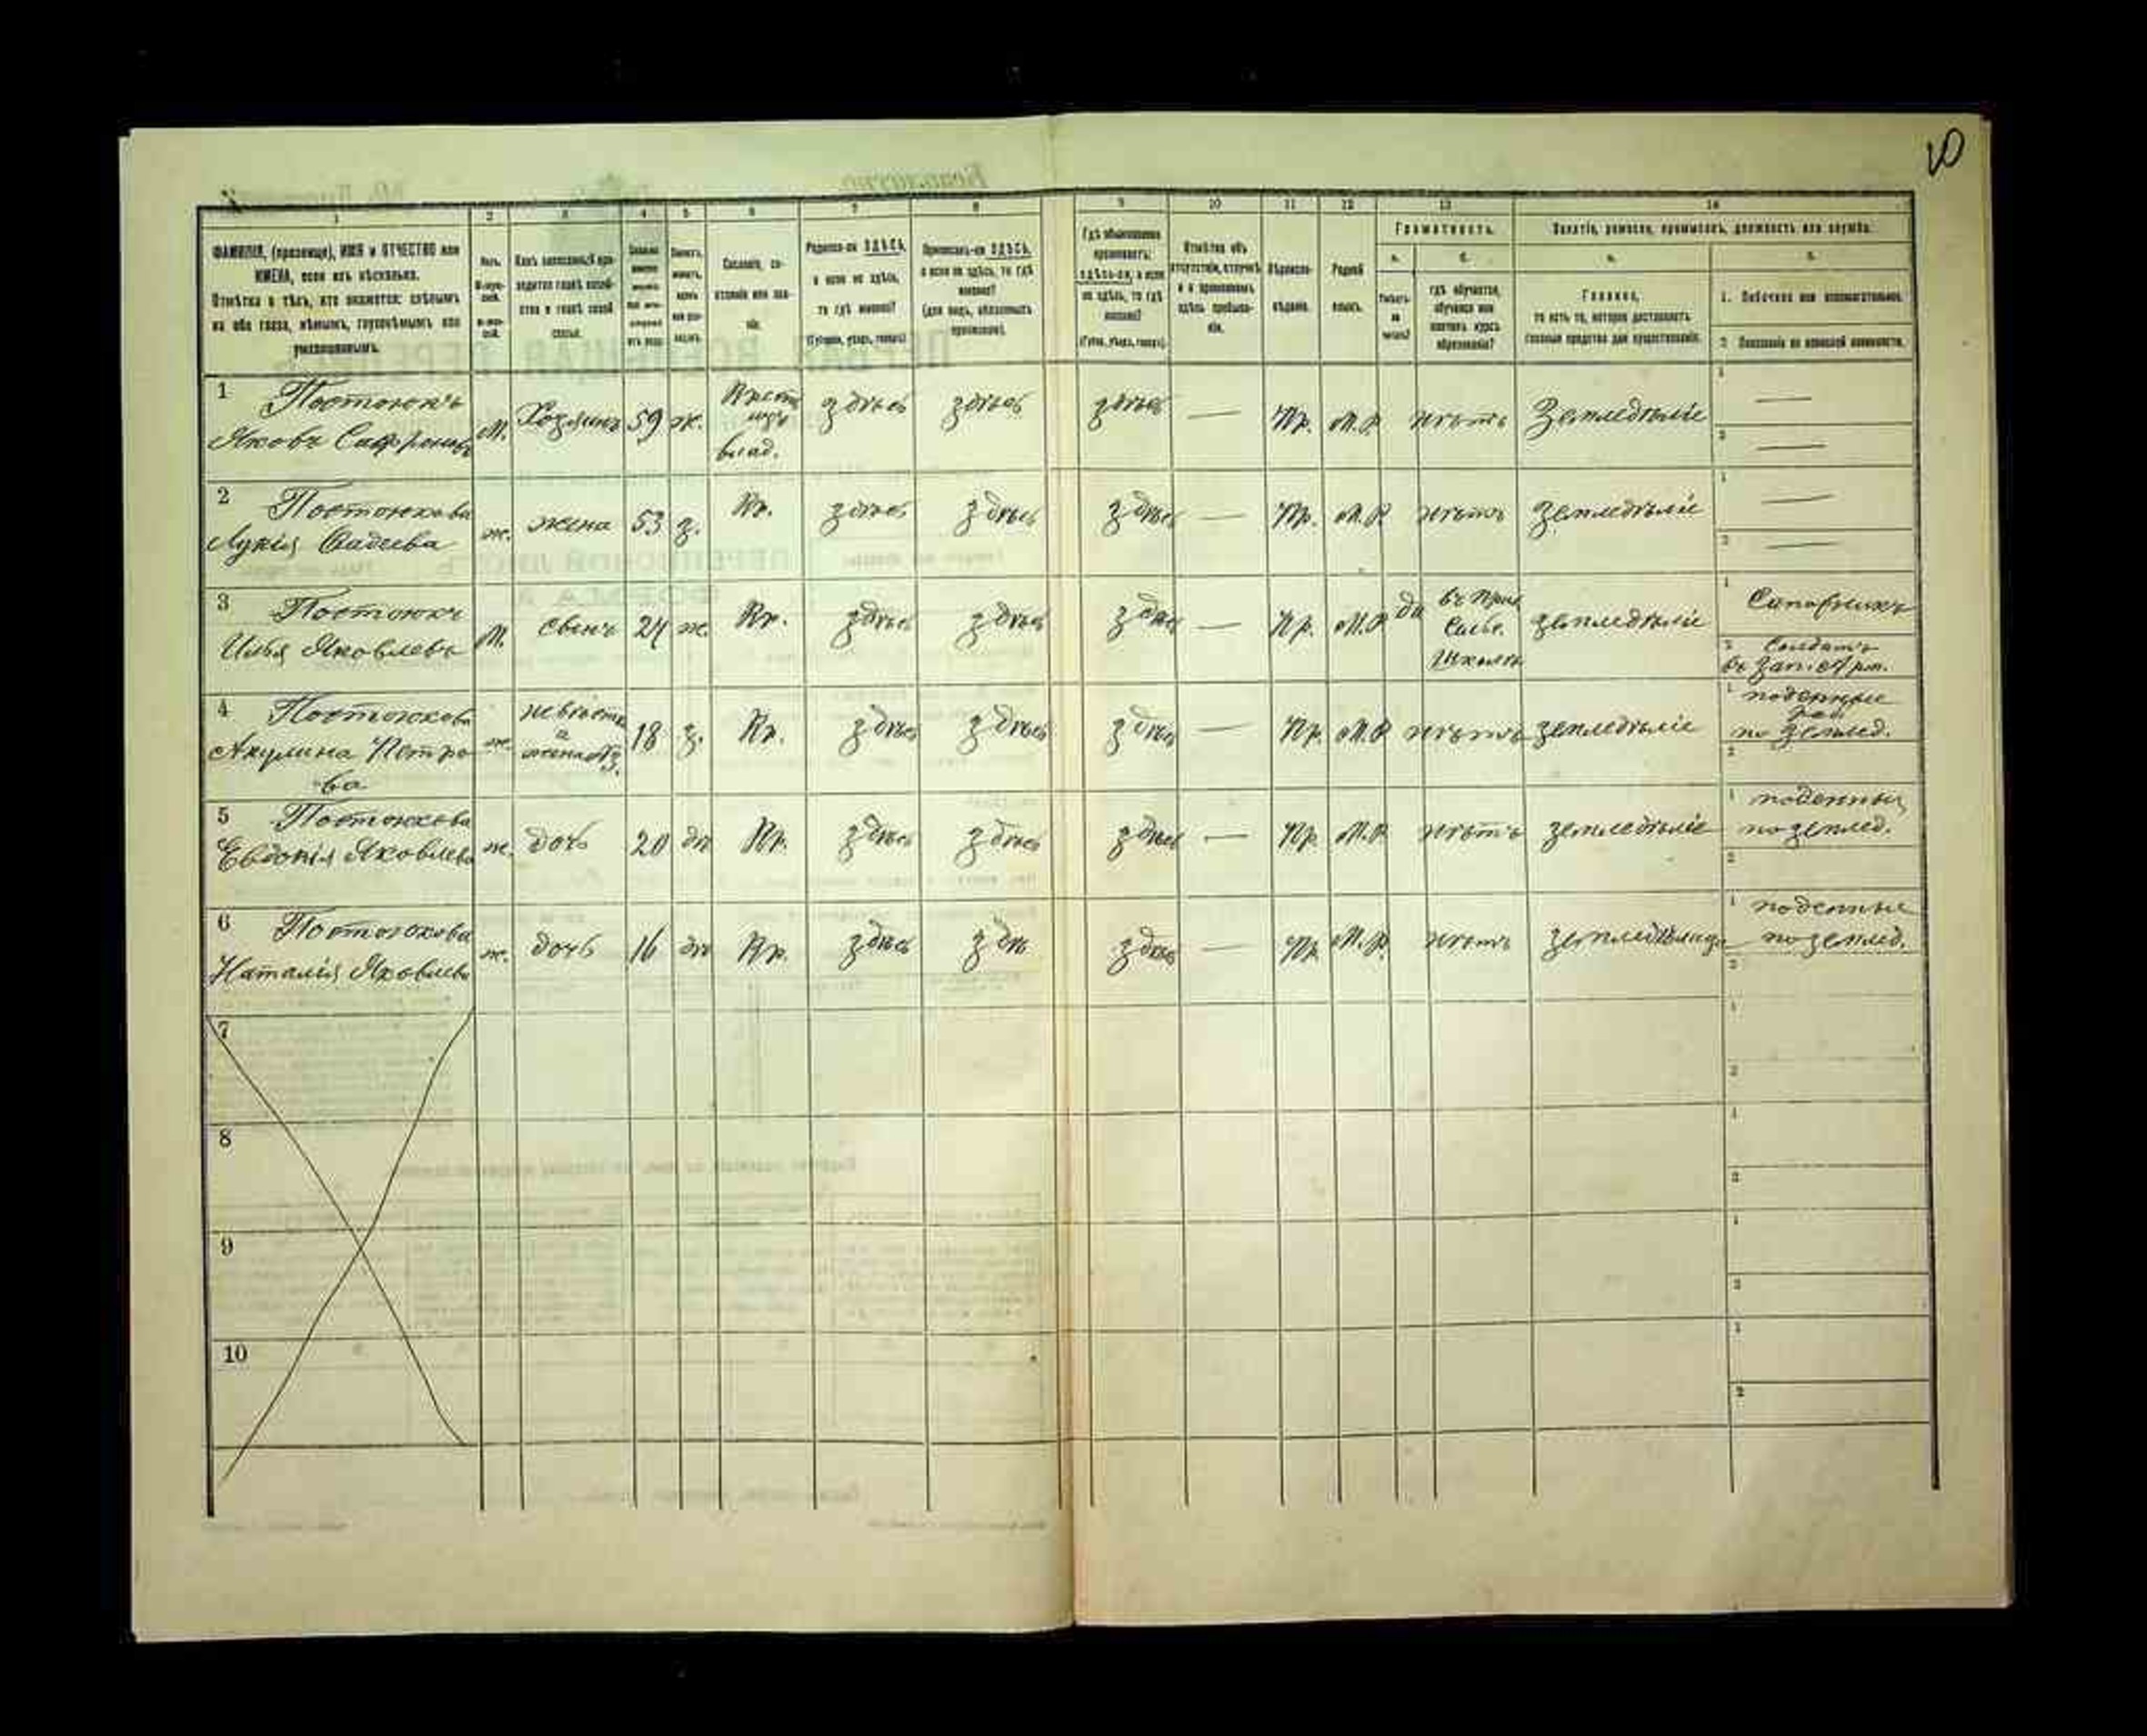 10
1 2 3 4 5 6 7 8 9 10 11 12 13 14
ФАМИЛІЯ, (прозвище), ИМЯ и ОТЧЕСТВО или
ИМЕНА, если ихъ нѣсколько.
Отмѣтка о тѣхъ, кто окажется: слѣпымъ
на оба глаза, нѣмымъ, глухонѣмымъ или
умалишеннымъ.
Полъ.
М-муж-
ской.
Ж-жен-
ской.
Какъ записанный при-
ходится главѣ хозяй-
ства и главѣ своей
семьи.
Сословіе, со-
стояніе или зва-
ніе.
Родился-ли ЗДѢСЬ,
а если не здѣсь,
то гдѣ именно?
(Губернія, уѣздъ, городъ).
Приписанъ-ли ЗДѢСЬ,
а если не здѣсь, то гдѣ
именно?
(для лицъ, обязанныхъ
припискою).
Гдѣ обыкновенно
проживаетъ:
здѣсь-ли, а если
не здѣсь, то гдѣ
именно?
(Губер., уѣздъ, городъ).
Отмѣтка объ
отсутствіи, отлучкѣ
и о временномъ
здѣсь пребыва-
ніи.
Вѣроиспо-
вѣданіе.
Родной
языкъ.
Грамотность.
а. б.
Умѣетъ-
ли
читать?
гдѣ обучается,
обучался или
кончилъ курсъ
образованія?
Занятіе, ремесло, промыселъ, должность или служба.
а. б.
Главное,
то есть то, которое доставляетъ
главныя средства для существованія.
1. Побочное или вспомогательное.
2. Положеніе по воинской повинности.
1 Постоюкъ
Яковъ Сафроновъ М. Хозяинъ 59 ж. Крест. изъ влад. здѣсь здѣсь здѣсь — Пр. М.Р. нѣтъ Земледѣліе 1 — 2 —
2 Постоюкова
Лукія Фадеева ж. жена 53 з. Кр. здѣсь здѣсь здѣсь — Пр. М.Р. нѣтъ земледѣліе 1 — 2 —
3 Постоюкъ
Илья Яковлевъ М. сынъ 24 ж. Кр. здѣсь здѣсь здѣсь — Пр. М.Р. да Школѣ земледѣліе 1 Сапожникъ 2 Солдатъ въ зап. Арм.
4 Постоюкова
Акулина Петро
ва ж. невѣстка а жена №3. 18 з. Кр. здѣсь здѣсь здѣсь — Пр. М.Р. нѣтъ земледѣліе 1 поденные раб. по землед. 2
5 Постоюкова
Евдокія Яковлева ж. дочь 20 дѣ Кр. здѣсь здѣсь здѣсь — Пр. М.Р. нѣтъ земледѣліе 1 поденныя по землед. 2
6 Постоюкова
Наталія Яковлева ж. дочь 16 дѣ Кр. здѣсь здѣ здѣсь — Пр. М.Р. нѣтъ 1 поденные по землед. 2
7 1 2
8 1 2
9 1 2
10 1 2